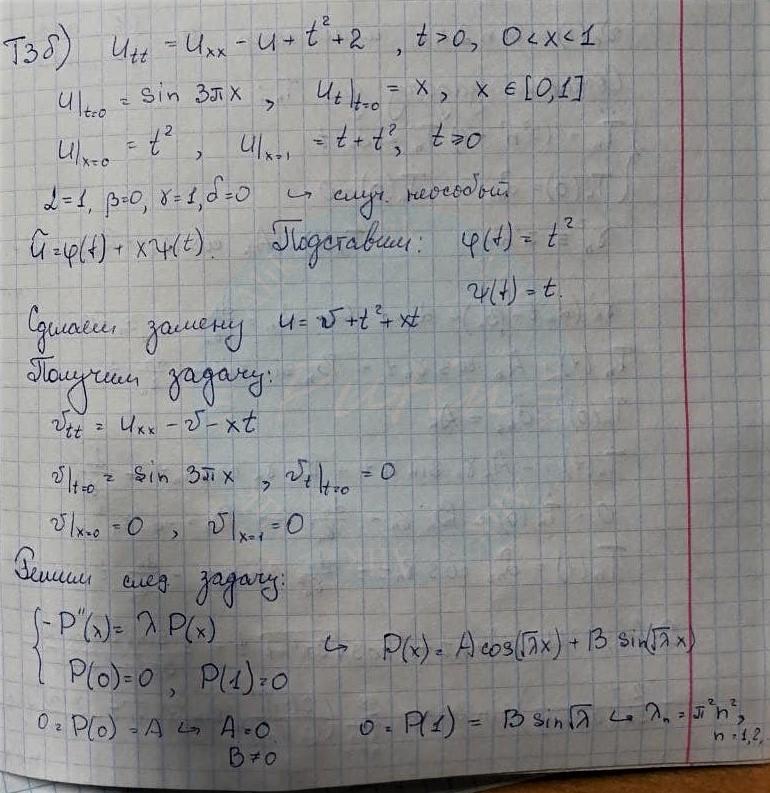 Т3б) u_tt = u_xx − u + t² + 2 , t>0, 0<x<1
u|_t=0 = sin 3πx , u_t|_t=0 = x, x ∈ [0,1]
u|_x=0 = t² , u|_x=1 = t + t², t≥0
α=1, β=0, γ=1, δ=0 ↪ случ. неособый
ũ=φ(t) + xψ(t). Подставим: φ(t) = t²
ψ(t) = t.
Сделаем замену u = v + t² + xt
Получим задачу:
v_tt = u_xx − v − xt
v|_t=0 = sin 3πx , v_t|_t=0 = 0
v|_x=0 = 0 , v|_x=1 = 0
Решим след задачу:
{ −P''(x) = λ P(x)
↪ P(x) = A cos(√λx) + B sin(√λx)
P(0)=0 , P(1)=0
0 = P(0) = A ↪ A=0 0 = P(1) = B sin√λ ↪ λ_n = π²n²,
B≠0 n=1,2,